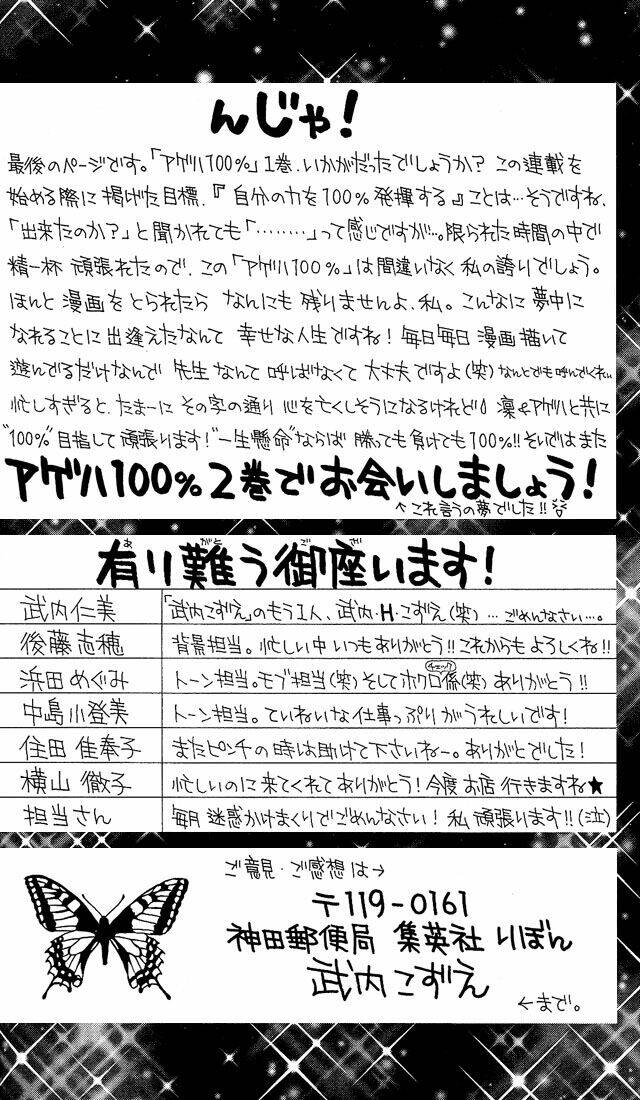 んじゃ!
最後のページです。「アゲハ100%」1巻、いかがだったでしょうか? この連載を
始める際に掲げた目標、『自分の力を100%発揮する』ことは…そうですね、
「出来たのか?」と聞かれても「‥‥‥‥」って感じですが…。限られた時間の中で
精一杯 頑張れたので、この「アゲハ100%」は間違いなく私の誇りでしょう。
ほんと 漫画を とられたら なんにも 残りませんよ、私。こんなに 夢中に
なれることに 出逢えたなんて 幸せな人生ですね! 毎日毎日 漫画描いて
遊んでるだけなんで 先生 なんて 呼ばなくて 大丈夫ですよ(笑)なんとでも呼んでくれい
忙しすぎると、たまーに その字の通り 心を亡くしそうになるけれど 凜&アゲハと共に
"100%"目指して頑張ります!"一生懸命"ならば 勝っても負けても100%!! そいではまた
アゲハ100%2巻でお会いしましょう!
↑これ言うの夢でした!!
有り難う御座います!
あ がと ご ざ
武内仁美 「武内こずえ」のもう1人、武内・H・こずえ(笑) …ごめんなさい…。
後藤志穂 背景担当。忙しい中いつもありがとう!! これからもよろしくね!!
浜田めぐみ トーン担当。モブ担当(笑)そしてホクロ係(笑)ありがとう!!
チェック
中島小登美 トーン担当。ていねいな仕事っぷりがうれしいです!
住田佳奉子 またピンチの時は助けて下さいねー。ありがとでした!
横山徹子 忙しいのに来てくれてありがとう!今度お店行きますね★
担当さん 毎月迷惑かけまくりでごめんなさい!私頑張ります!!(泣)
ご意見・ご感想は→
〒119-0161
神田郵便局 集英社 りぼん
武内こずえ
←まで。